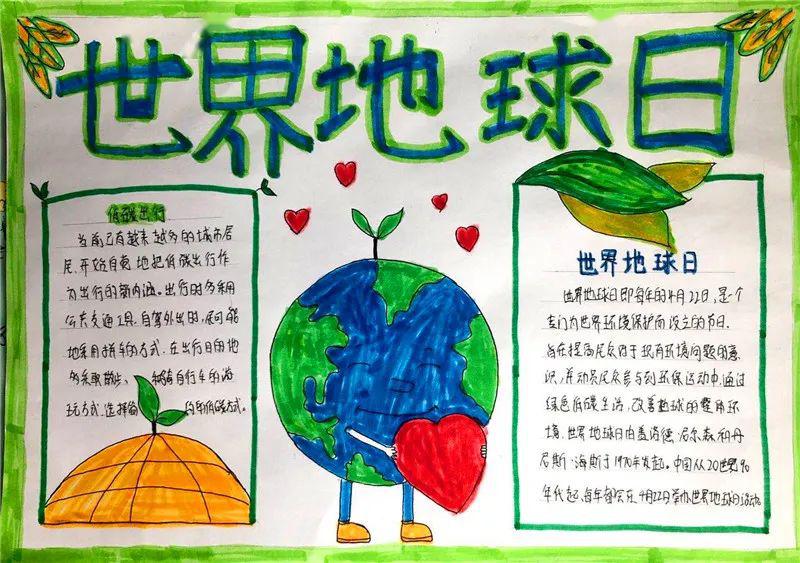 世界地球日
低碳出行
当前已有越来越多的城市居
民,开始自觉地把低碳出行作
为出行的新内涵。出行时多利用
公共交通工具,自驾外出时,尽可能
地采用拼车的方式,在出行目的地
多采取散步、自行车的游
玩方式,选择简约的低碳方式。
世界地球日
世界地球日即每年的4月22日,是一个
专门为世界环境保护而设立的节日,
旨在提高民众对于现有环境问题的意
识,并动员民众参与到环保运动中,通过
绿色低碳生活,改善地球的整体环
境。世界地球日由盖洛德·尼尔森和丹
尼斯·海斯于1970年发起。中国从20世纪90
年代起,每年都会在4月22日举办世界地球日活动。